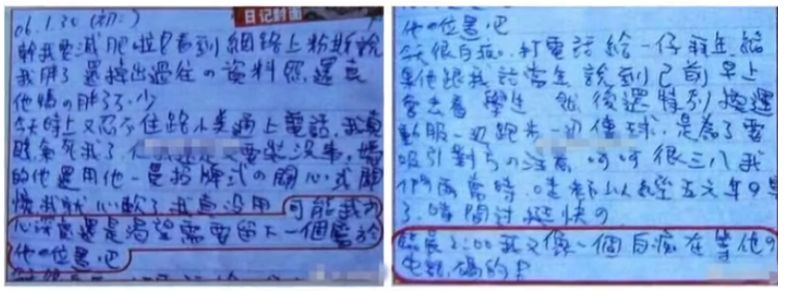 日记封面
06.1.30 (初二)
幹我要減肥啦 看到網路上粉斯說
我胖了還 出過往の資料照 還真
他媽の胖了不少
今天晚上又忍不住 小美通上電話,我真
氣死我了, 還是又要裝沒事,媽
的他還用他一貫招牌式の關心或關
懷,我就心軟了我真沒用 可能我內
心深處還是渴望需要留下一個屬於
他の位置吧
他の位置吧
今天很白痴,打電話給一仔 結
果他跟我話當年 說到已前早上
要去看 學生 然後還特別換運
動服一边跑步一边傳球,是為了要
吸引對方の注意,呵呵 很三八 我
們兩當時,哇都 五六年の事
了,時間过挺快の
臨晨2:00 我又像一個白痴在等他の
电話,媽的